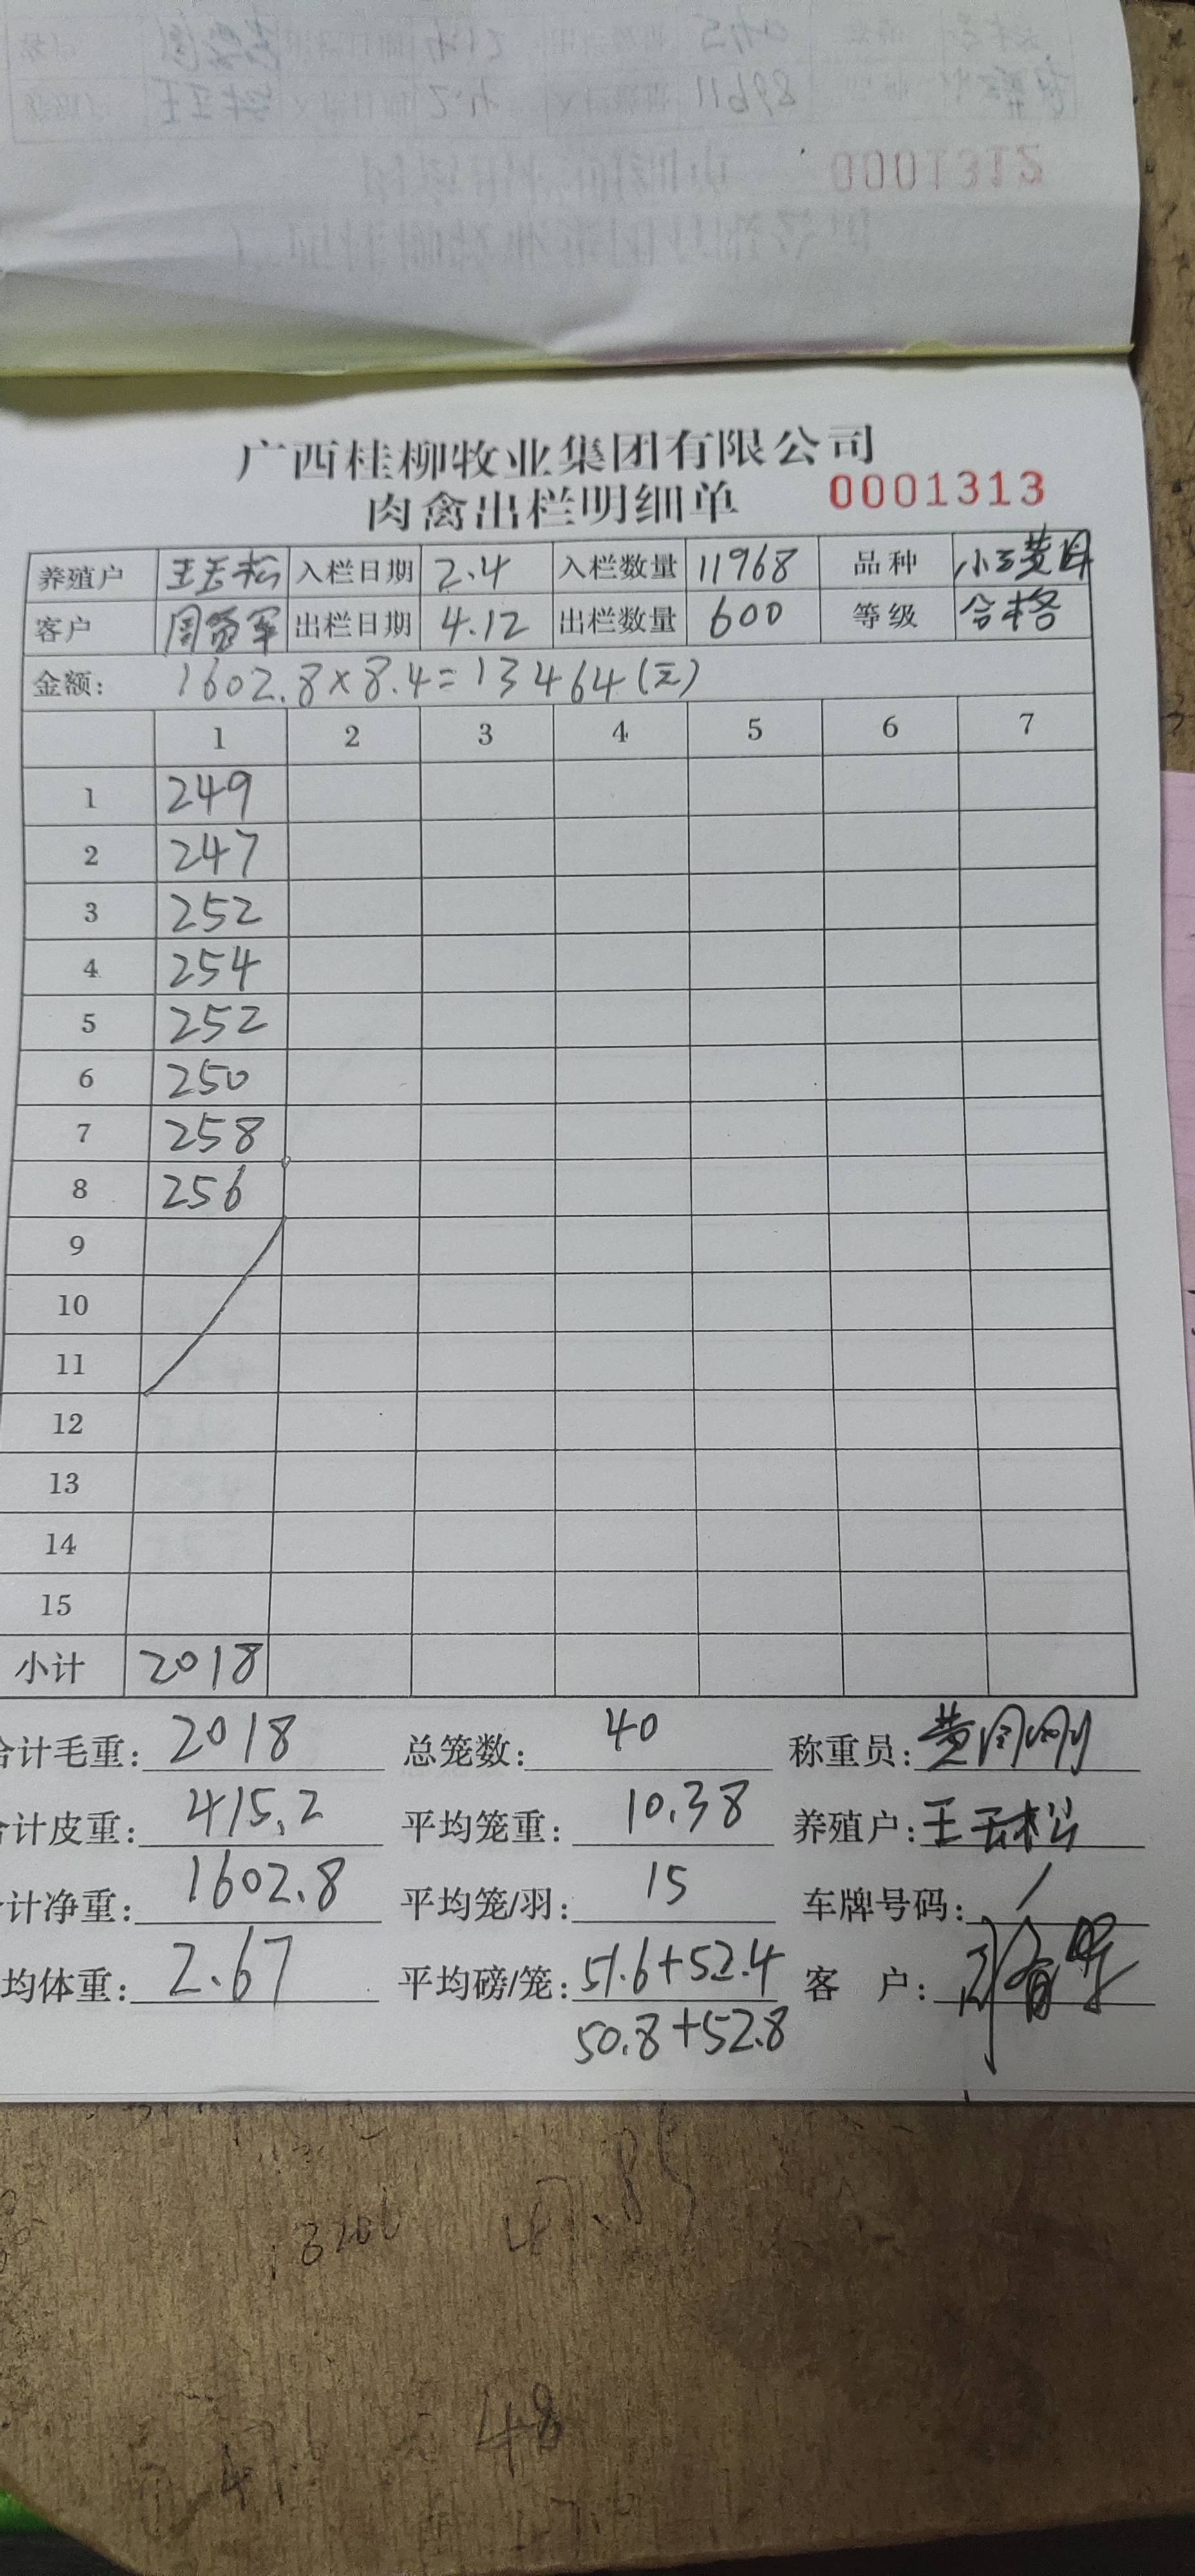 0001312
广西桂柳牧业集团有限公司
肉禽出栏明细单 0001313
养殖户 王云松 入栏日期 2.4 入栏数量 11968 品种
客户 出栏日期 4.12 出栏数量 600 等级 合格
金额: 1602.8×8.4=13464(元)
1 2 3 4 5 6 7
1 249
2 247
3 252
4 254
5 252
6 250
7 258
8 256
9
10
11
12
13
14
15
小计 2018
合计毛重: 2018 总笼数: 40 称重员:
计皮重: 415.2 平均笼重: 10.38 养殖户: 王云松
计净重: 1602.8 平均笼/羽: 15 车牌号码: /
均体重: 2.67 平均磅/笼: 51.6+52.4 客 户:
50.8+52.8
48